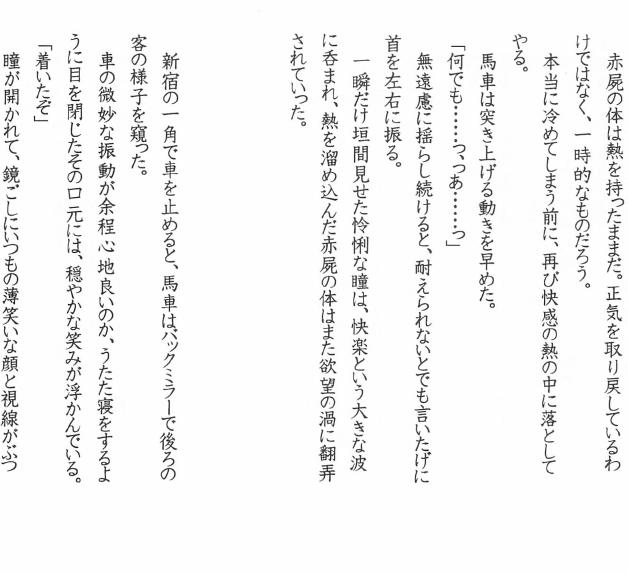 赤屍の体は熱を持ったままだ。正気を取り戻しているわ
けではなく、一時的なものだろう。
本当に冷めてしまう前に、再び快感の熱の中に落として
やる。
馬車は突き上げる動きを早めた。
「何でも……っ、っあ……っ」
無遠慮に揺らし続けると、耐えられないとでも言いたげに
首を左右に振る。
一瞬だけ垣間見せた怜悧な瞳は、快楽という大きな波
に呑まれ、熱を溜め込んだ赤屍の体はまた欲望の渦に翻弄
されていった。
新宿の一角で車を止めると、馬車はバックミラーで後ろの
客の様子を窺った。
車の微妙な振動が余程心地良いのか、うたた寝をするよ
うに目を閉じたその口元には、穏やかな笑みが浮かんでいる。
「着いたぞ」
瞳が開かれて、鏡ごしにいつもの薄笑いな顔と視線がぶつ